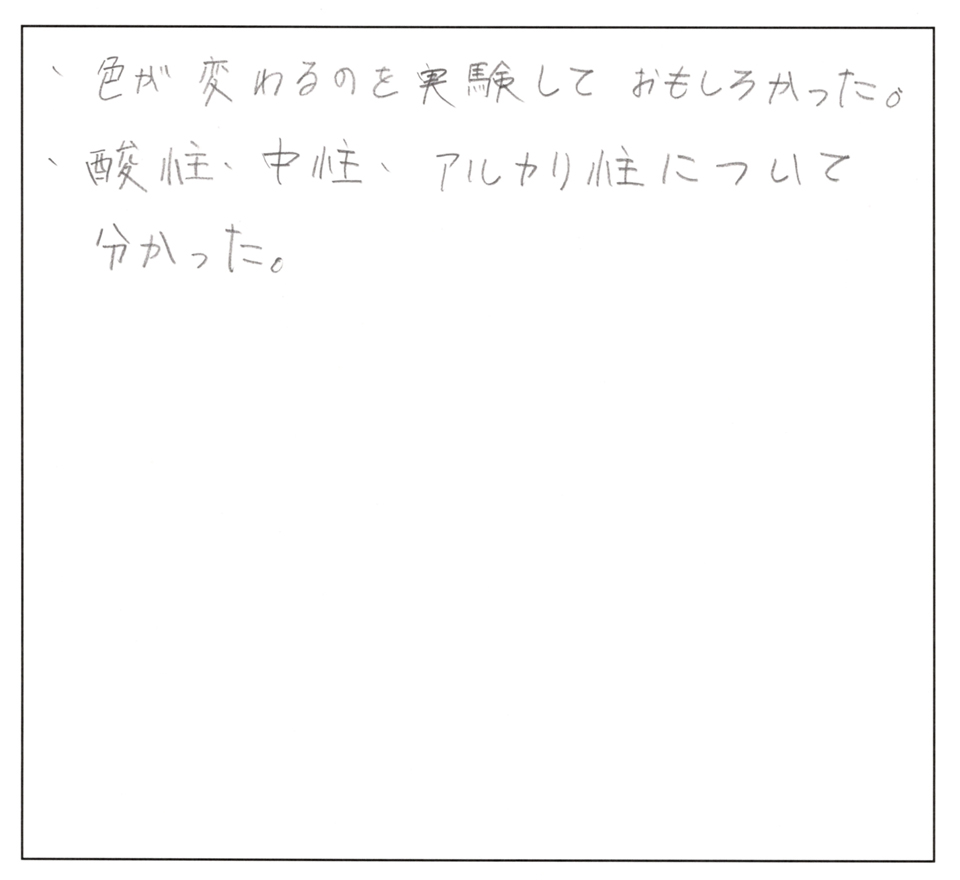 ・色が変わるのを実験しておもしろかった。
・酸性、中性、アルカリ性について
分かった。